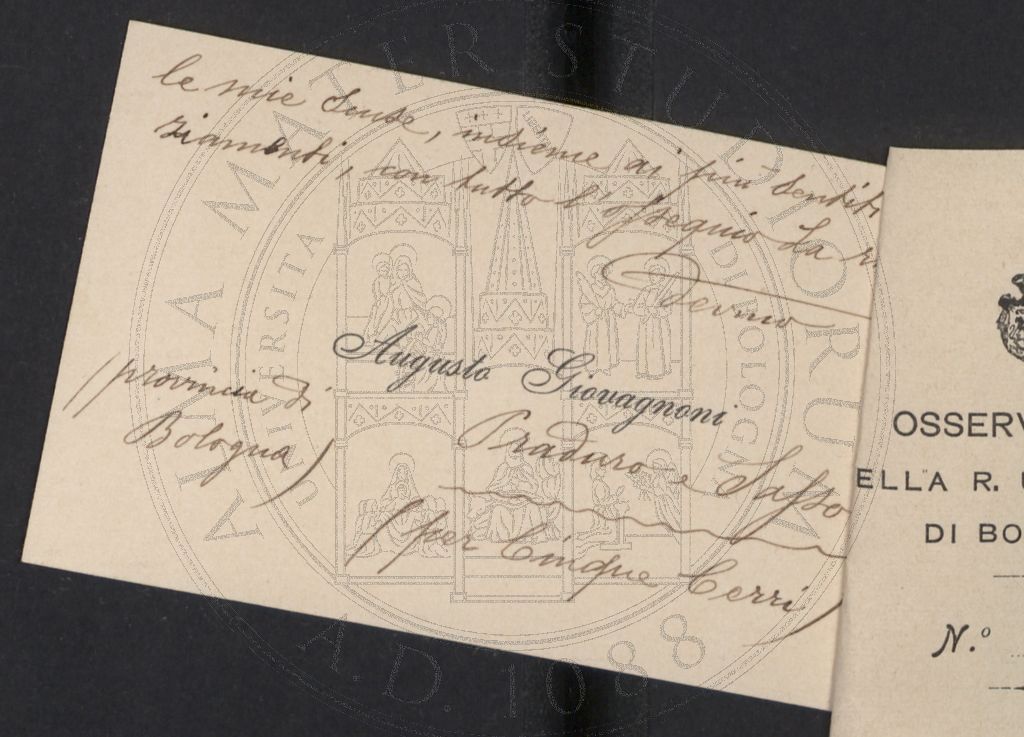 le mie scuse, insieme ai più sentiti
ziamenti, con tutto l'ossequio. La r.
Devmo
Augusto Giovagnoni
(provincia di
Bologna)
Praduro e Sasso
(per Cinque Cerri)
OSSERV
ELLA R. U
DI BO
N.º
ALMA MATER STUDIORUM
UNIVERSITA DI BOLOGNA
A.D. 1088